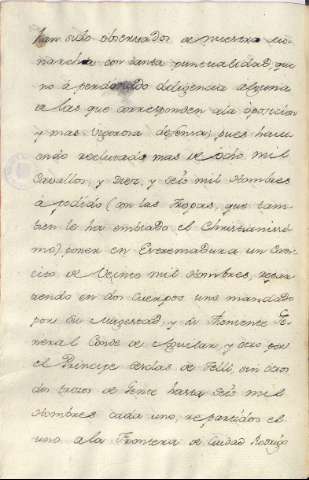 han sido observados de nuestro Mo
narcha con tanta puncualidad, que
no á perdonado deligencia alguna
de las que corresponden ala oposicion
y mas vigorosa defensa, pues havi
endo reclutado mas de ocho mil
Cavallos, y Diez, y seis mil Hombres
á podido (con las Tropas, que tam
bien le ha embiado el Christianissi
mo) poner en Extremadura un Exer
cito de Veinte mil Hombres,
en dos Cuerpos uno mandado
por su Magestad, y su Theniente Ge
neral Conde de Aguilar, y otro por
el Principe Serclas de Tilli, sin otros
dos trozos de Gente hasta seis mil
Hombres cada uno, repartidos el
uno á la Frontera de Ciudad Rodrigo